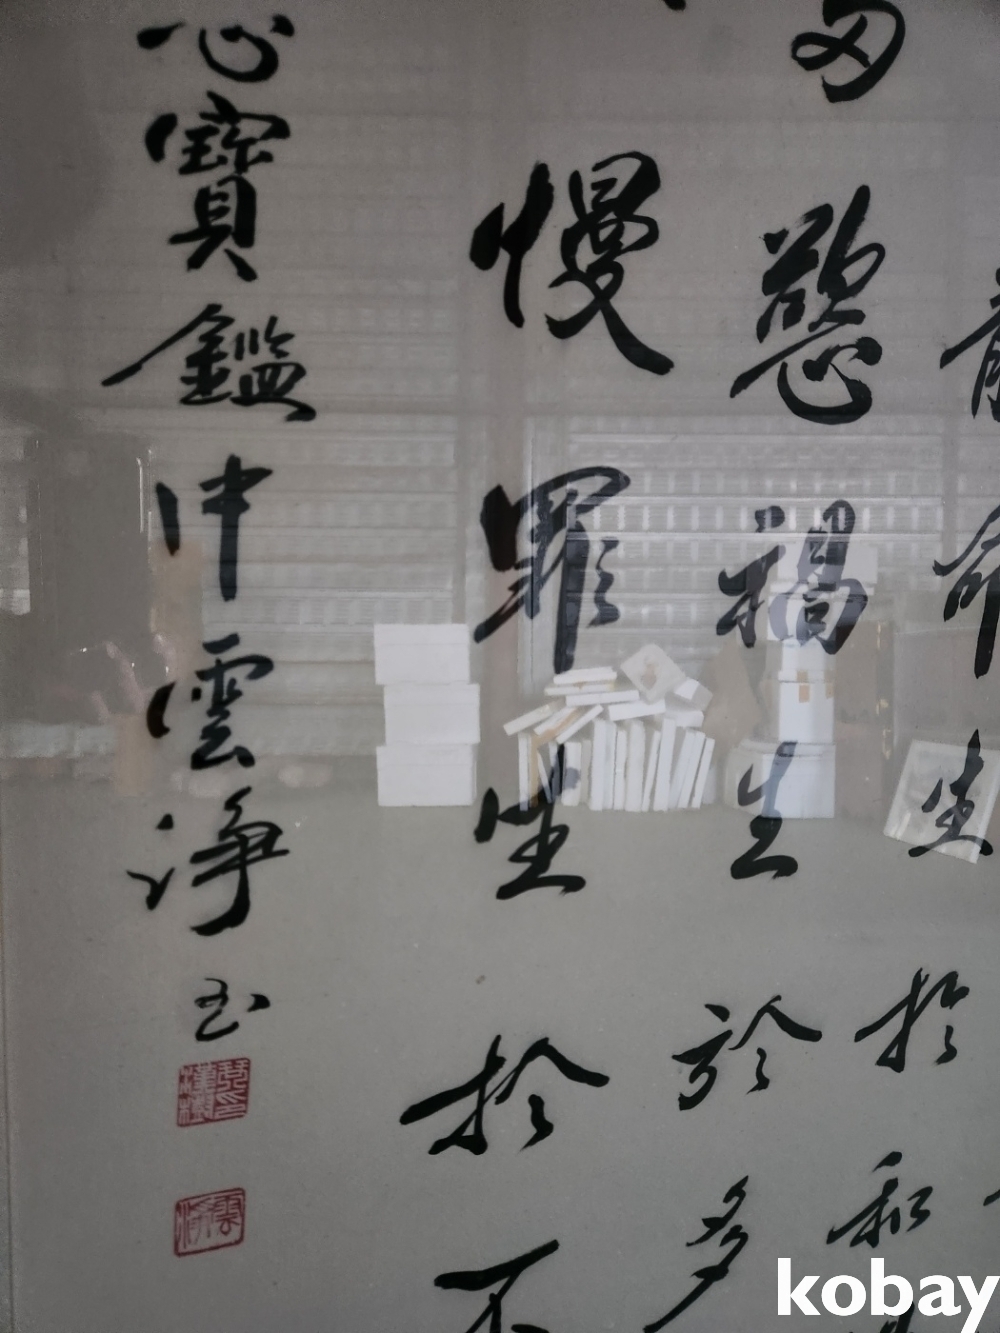 命生於和
多慾禍生於多
慢罪生於不
心寶鑑中雲淨
kobay